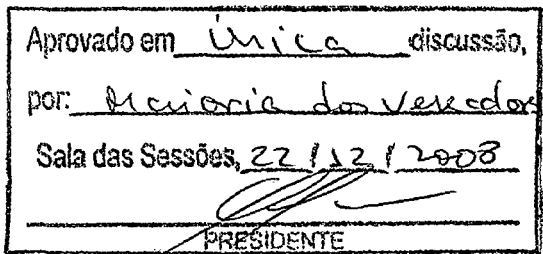 Aprovado em Única discussão,
por: Maioria dos Vereadores
Sala das Sessões, 22/12/2008
PRESIDENTE